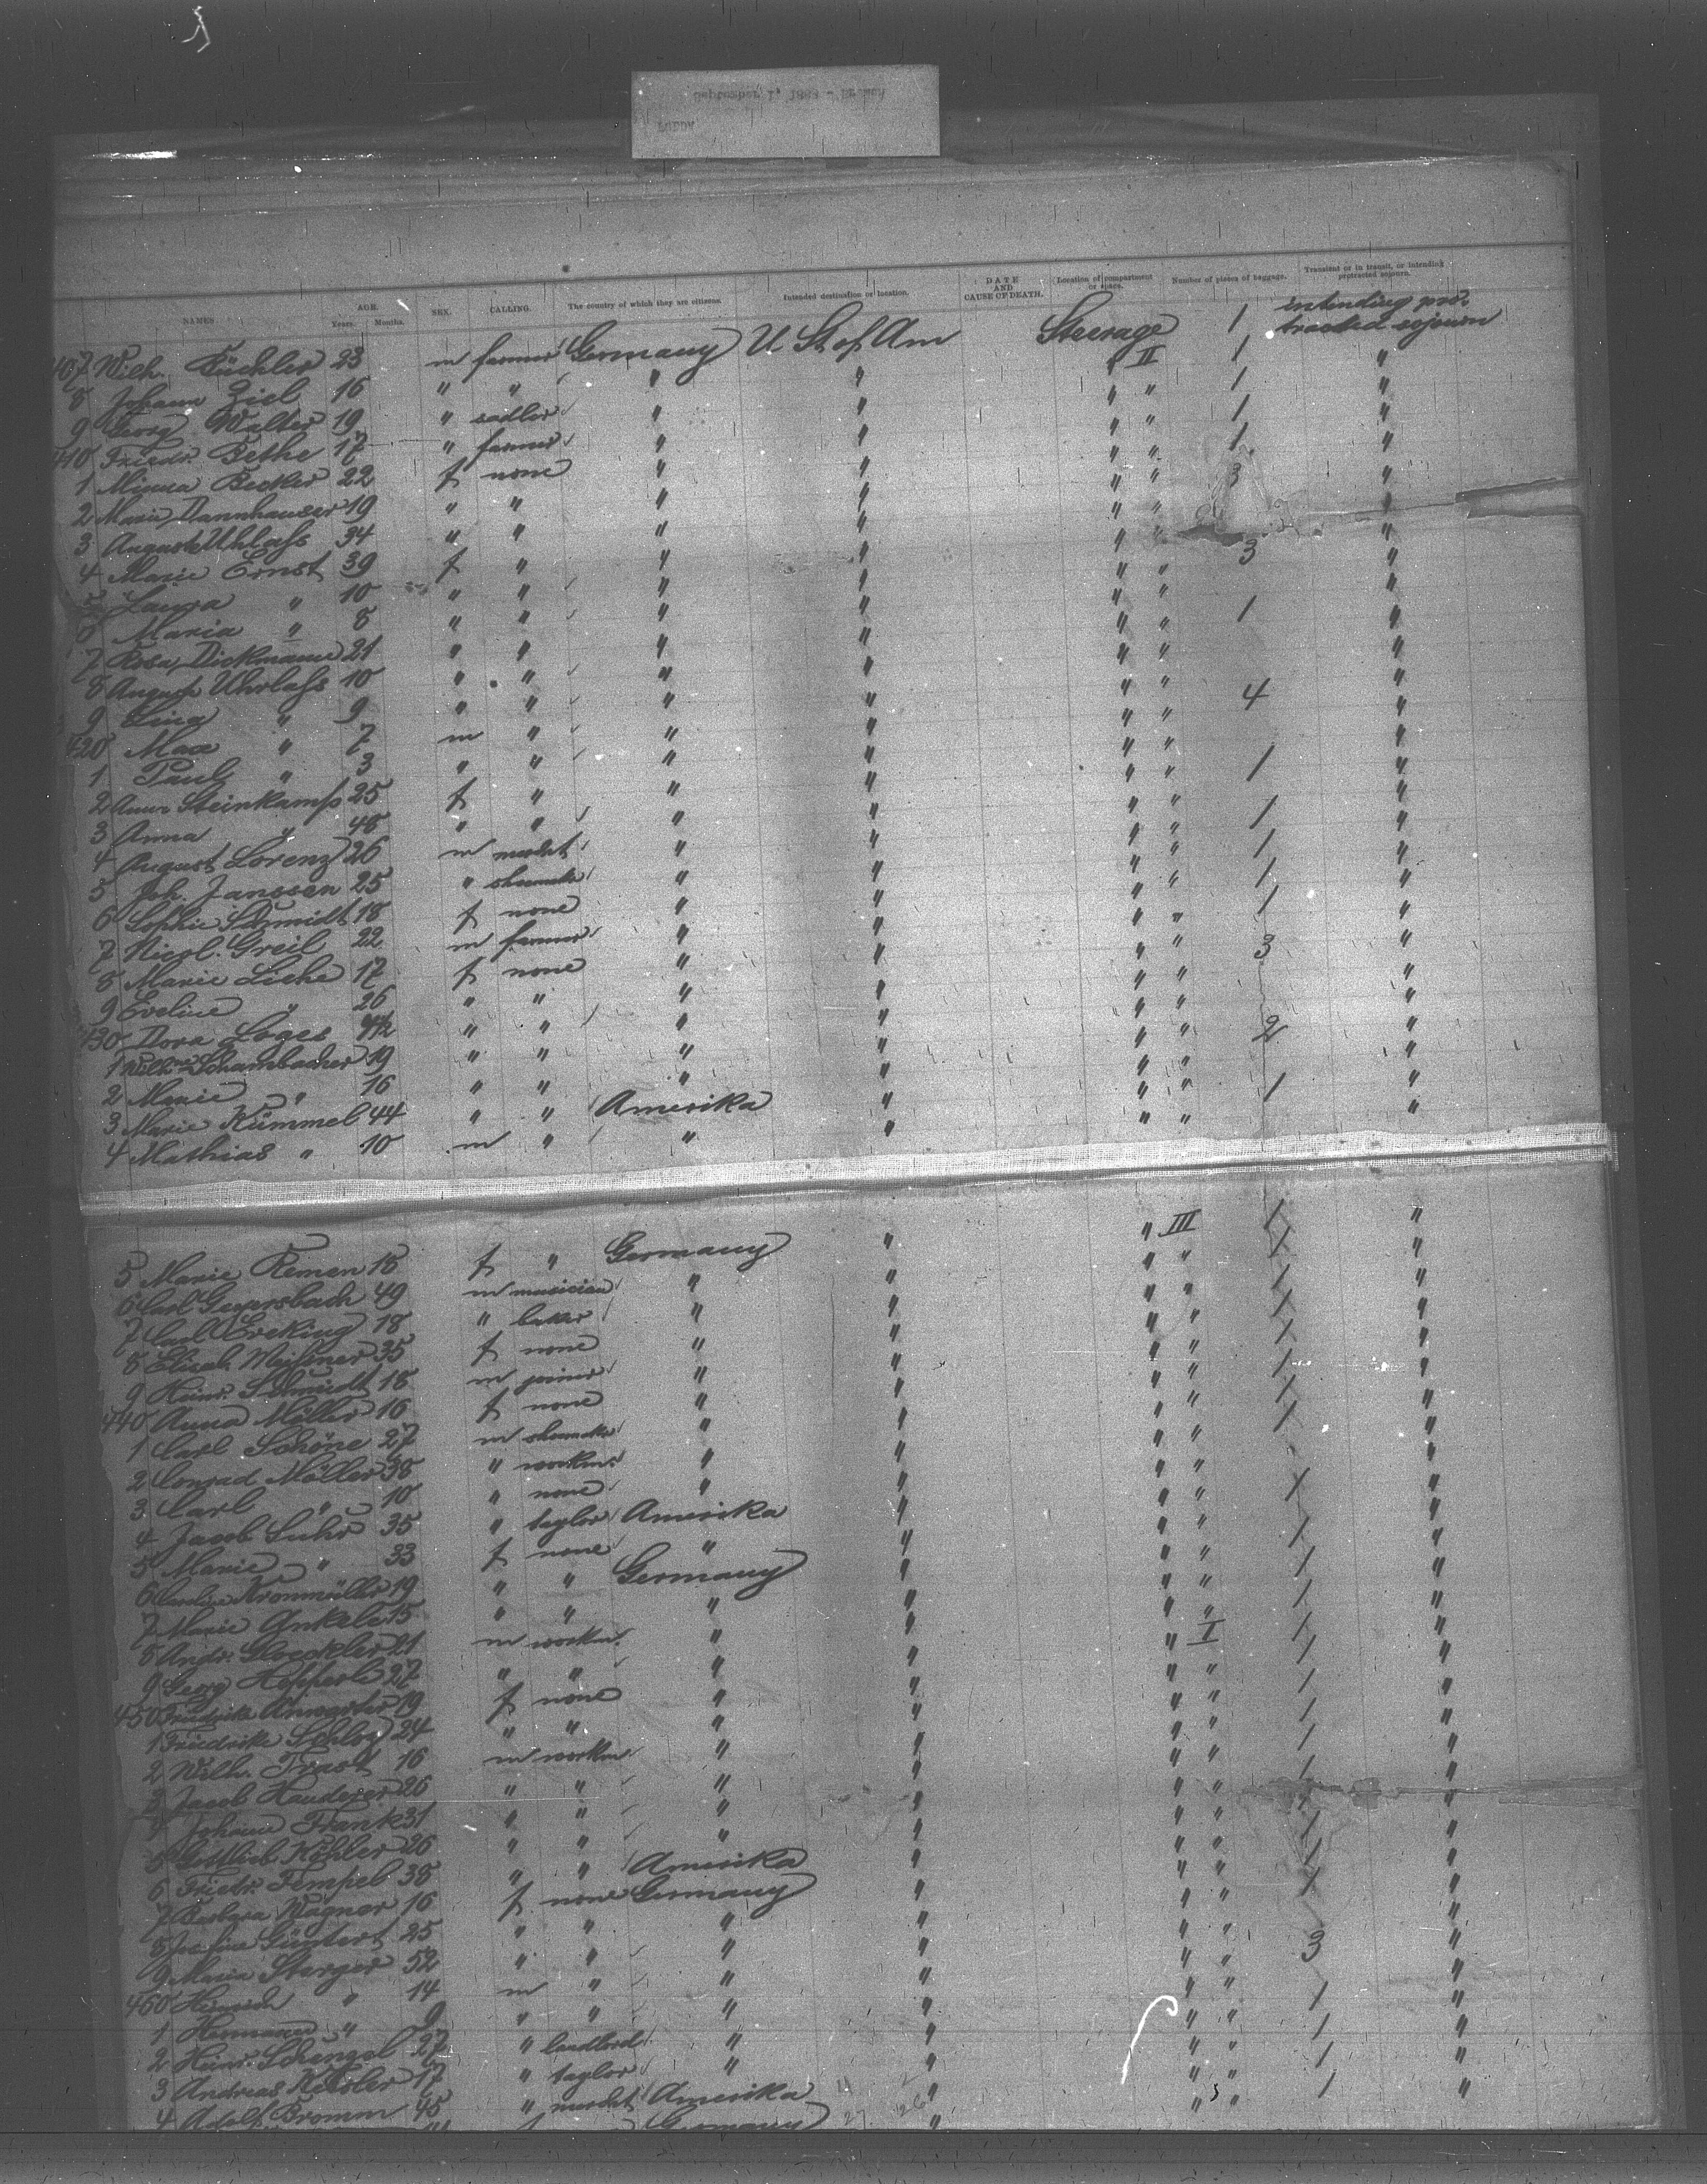 September 1, 1888
FULDA
NAMES AGE. Years. Months. SEX. CALLING. The country of which they are citizens. Intended destination or location. DATE AND CAUSE OF DEATH. Location of compartment or space. Number of pieces of baggage. Transient or in transit, or intending protracted sojourn.
407 Wilh. Küchler 23 m farmer Germany U St of Am Steerage 1 intending pro-tracted sojourn
8 Johann Ziel 16 " " " " " II 1 "
9 Georg Walter 19 " sadler " " " " 1 "
410 Friedr. Bethe 17 " farmer " " " " 1 "
1 Minna Becker 22 f none " " " " 1 "
2 Marie Dannhauser 19 " " " " " " 3 "
3 Auguste Uhlafs 34 " " " " " " "
4 Marie Ernst 39 f " " " " " 3 "
5 Laura " 10 " " " " " " "
6 Maria " 8 " " " " " " "
7 Rosa Dickmann 21 " " " " " " 1 "
8 August Uhrlafs 10 " " " " " " "
9 Lina " 9 " " " " " " "
420 Max " 7 m " " " " " 4 "
1 Paul " 3 " " " " " " "
2 Anna Steinkamp 25 f " " " " " 1 "
3 Anna " 48 " " " " " " "
4 August Lorenz 26 m " " " " 1 "
5 Joh. Janssen 25 " shoemak " " " " 1 "
6 Sophie Schmidt 18 f none " " " " 1 "
7 Nicol. Greil 22 m farmer " " " " 1 "
8 Marie Liche 17 f none " " " " 3 "
9 Eveline " 26 " " " " " " "
430 Dora Loges " " " " " " "
1 Wilhne Schambacher 19 " " " " " " 2 "
2 Marie " 16 " " " " " " "
3 Marie Kümmel 44 " " Amerika " " " 1 "
4 Mathias " 10 m " " " " " "
5 Marie Remen 18 f " Germany " " III 1 "
6 Carl Geyersbach 49 m musician " " " " 1 "
7 Carl Ereking 18 " baker " " " " 1 "
8 Elisab. Meifsner 35 f none " " " " 1 "
9 Heinr. Schmidt 18 m joiner " " " " 1 "
440 Anna Möller 16 f none " " " " 1 "
1 Carl Schöne 27 m shoemak " " " " 1 "
2 Conrad Möller 38 " workm. " " " " 1 "
3 Carl " 10 " none " " " " "
4 Jacob Suhr 35 " taylor Amerika " " " 1 "
5 Marie " 33 f none " " " " "
6 Caroline Kronmüller 19 " " Germany " " " 1 "
7 Marie Ankele 15 " " " " " " 1 "
8 Andr. Gloeckler 21 m workm. " " " I 1 "
9 Georg Hepperle 27 " " " " " " 1 "
450 Friedricke 19 f none " " " " 1 "
1 Friedricke Schloz 24 " " " " " " 1 "
2 Wilh. Trast 16 m workm " " " " 1 "
3 Jacob Hauderer 26 " " " " " " 1 "
4 Johann Frank 31 " " " " " " 1 "
5 Gottlieb Köhler 26 " " " " " " 1 "
6 Friedr. Tempel 38 " " Amerika " " " 1 "
7 Barbara Wagner 16 f none Germany " " " 1 "
8 Josefine Güntert 25 " " " " " " "
9 Maria Sterger 52 " " " " " " 3 "
460 Heinrich " 14 m " " " " " "
1 Hermann " 9 " " " " " " "
2 Heinr. Schengel 27 " landlord " " " " 1 "
3 Andreas Kessler 17 " taylor " " " " 1 "
4 Adolf Bromm 45 " Amerika " " " 1 "
Germany "